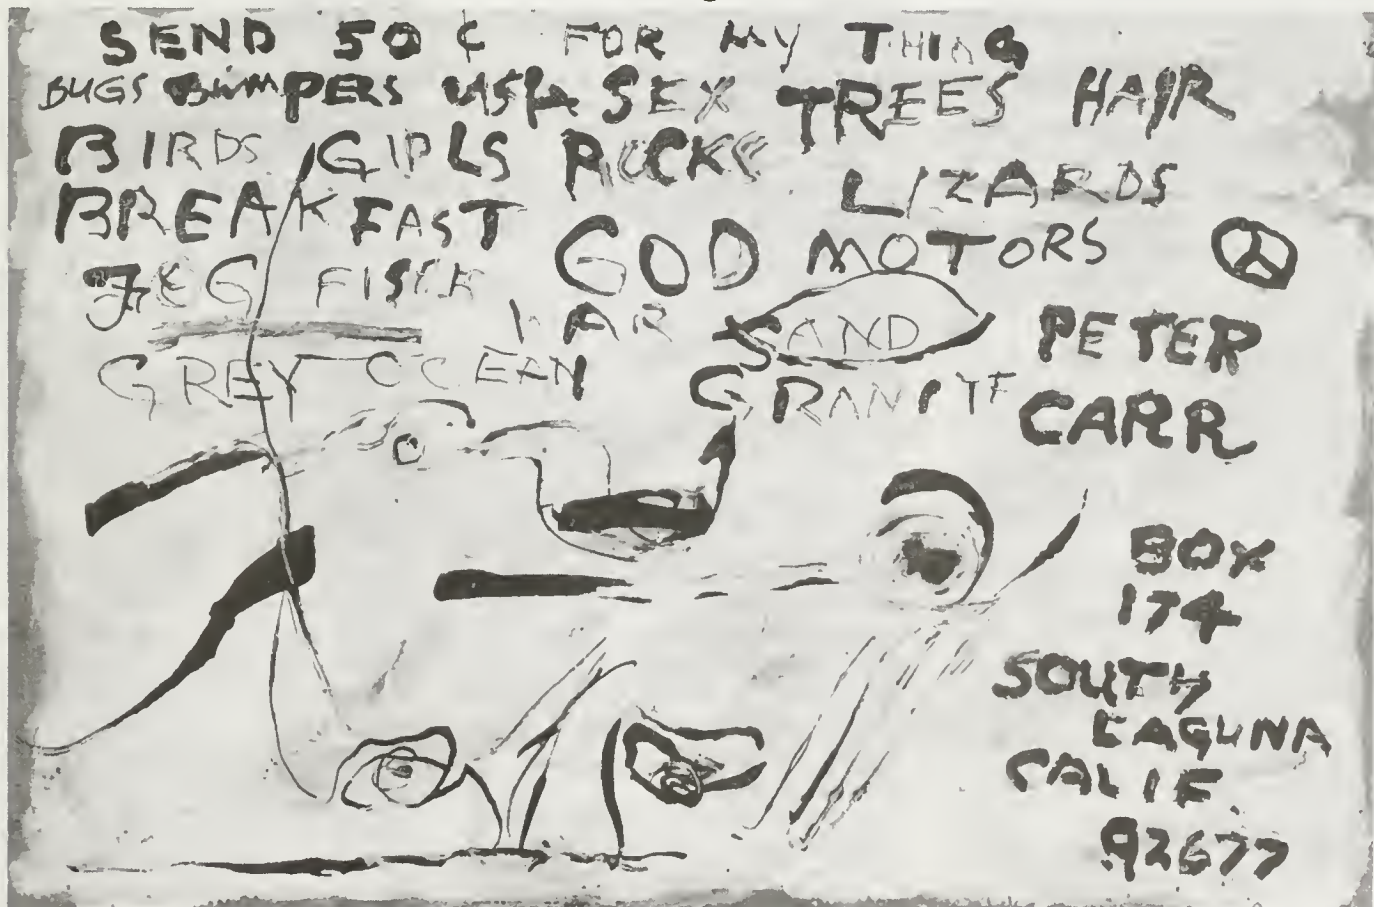 SEND 50¢ FOR MY THING
BUGS BUMPERS USA SEX TREES HAIR
BIRDS GIRLS ROCKS LIZARDS
BREAKFAST GOD MOTORS
FOG FISCH WAR SAND PETER
GREY OCEAN GRANITE CARR
BOX
174
SOUTH
LAGUNA
CALIF.
92677